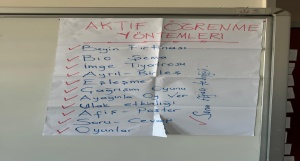 AKTİF ÖĞRENME
YÖNTEMLERİ
Beyin Fırtınası
Bio Şema
İmge Tiyatrosu
Ayrıl-Birleş
Eşleşme
Çağrışım Oyunu
Ayağınla Oy Ver
Afiş-Poster
Soru-Cevap
Oyunlar